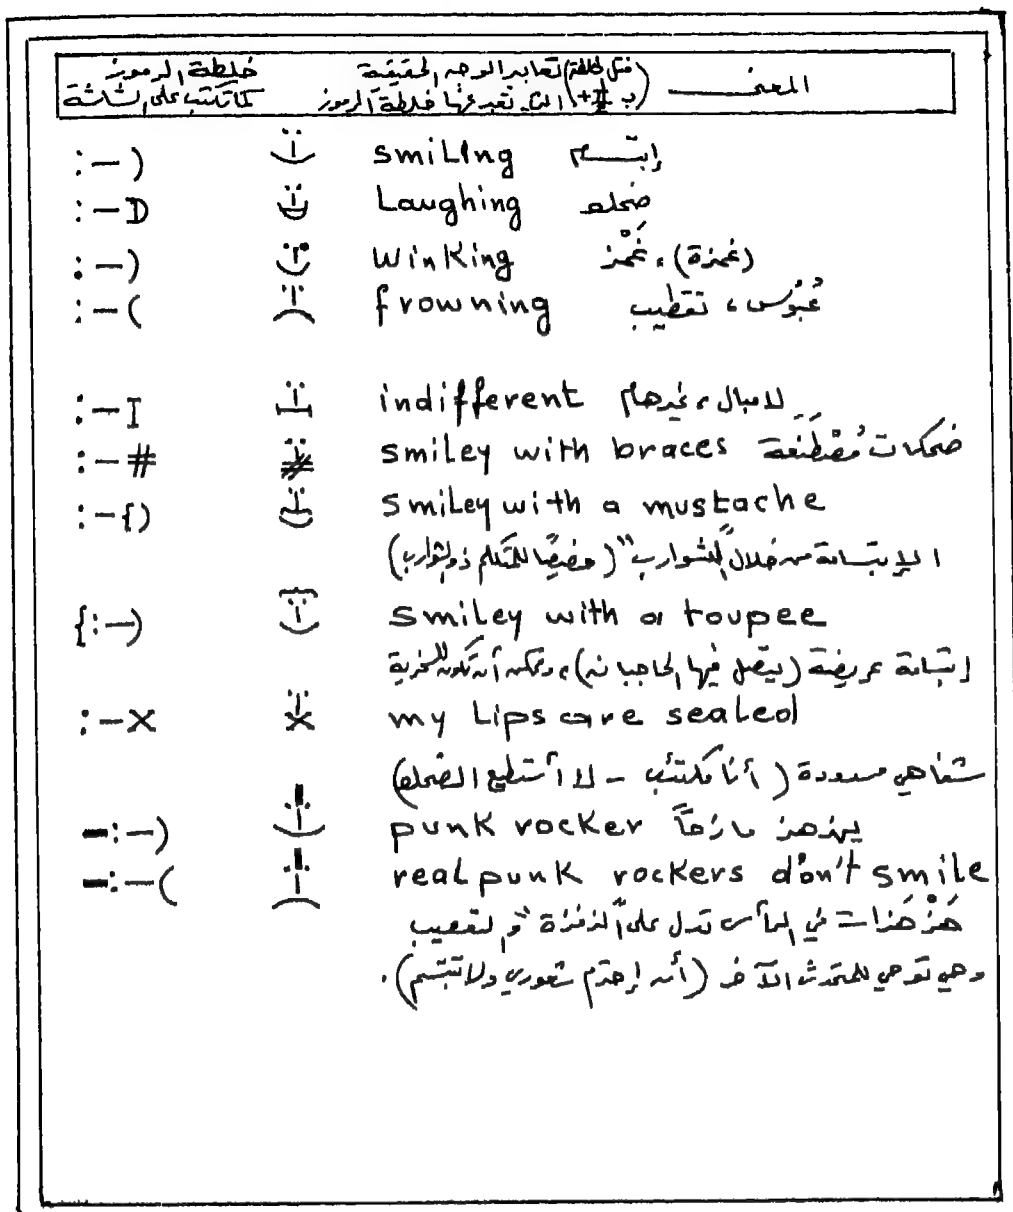 المعنى (مثل الخلفة) تعابير الوجه الحقيقية خلطة الرموز
التي تعبر عنها خلطة الرموز كما تكتب على الشاشة
:-) smiling إبتسام
:-D Laughing ضحك
.-) winking (غمزة)، غَمْز
:-( frowning عُبُوس، تقطيب
:-I indifferent لامبال، غيرهام
:-# smiley with braces ضحكات مُصْطَنَعة
:-{) smiley with a mustache
الإبتسامة من خلال "الشوارب" (خصيصًا للمتكلم ذو الشوارب)
{:-) smiley with a toupee
إبتسامة عريضة (يتصل فيها الحاجبان)، ويمكن أن تكون للسخرية
:-X my Lips are sealed
شفاهي مسدودة (أنا مكتئب - لا أستطيع الضحك)
-:-) punk rocker يهزهز مازحاً
-:-( real punk rockers don't smile
هَزْهَزات في الرأس تدل على "النرفزة" و التعصيب
وهي توحي للمتحدث الآخر (أن إحترم شعوري ولا تبتسم).